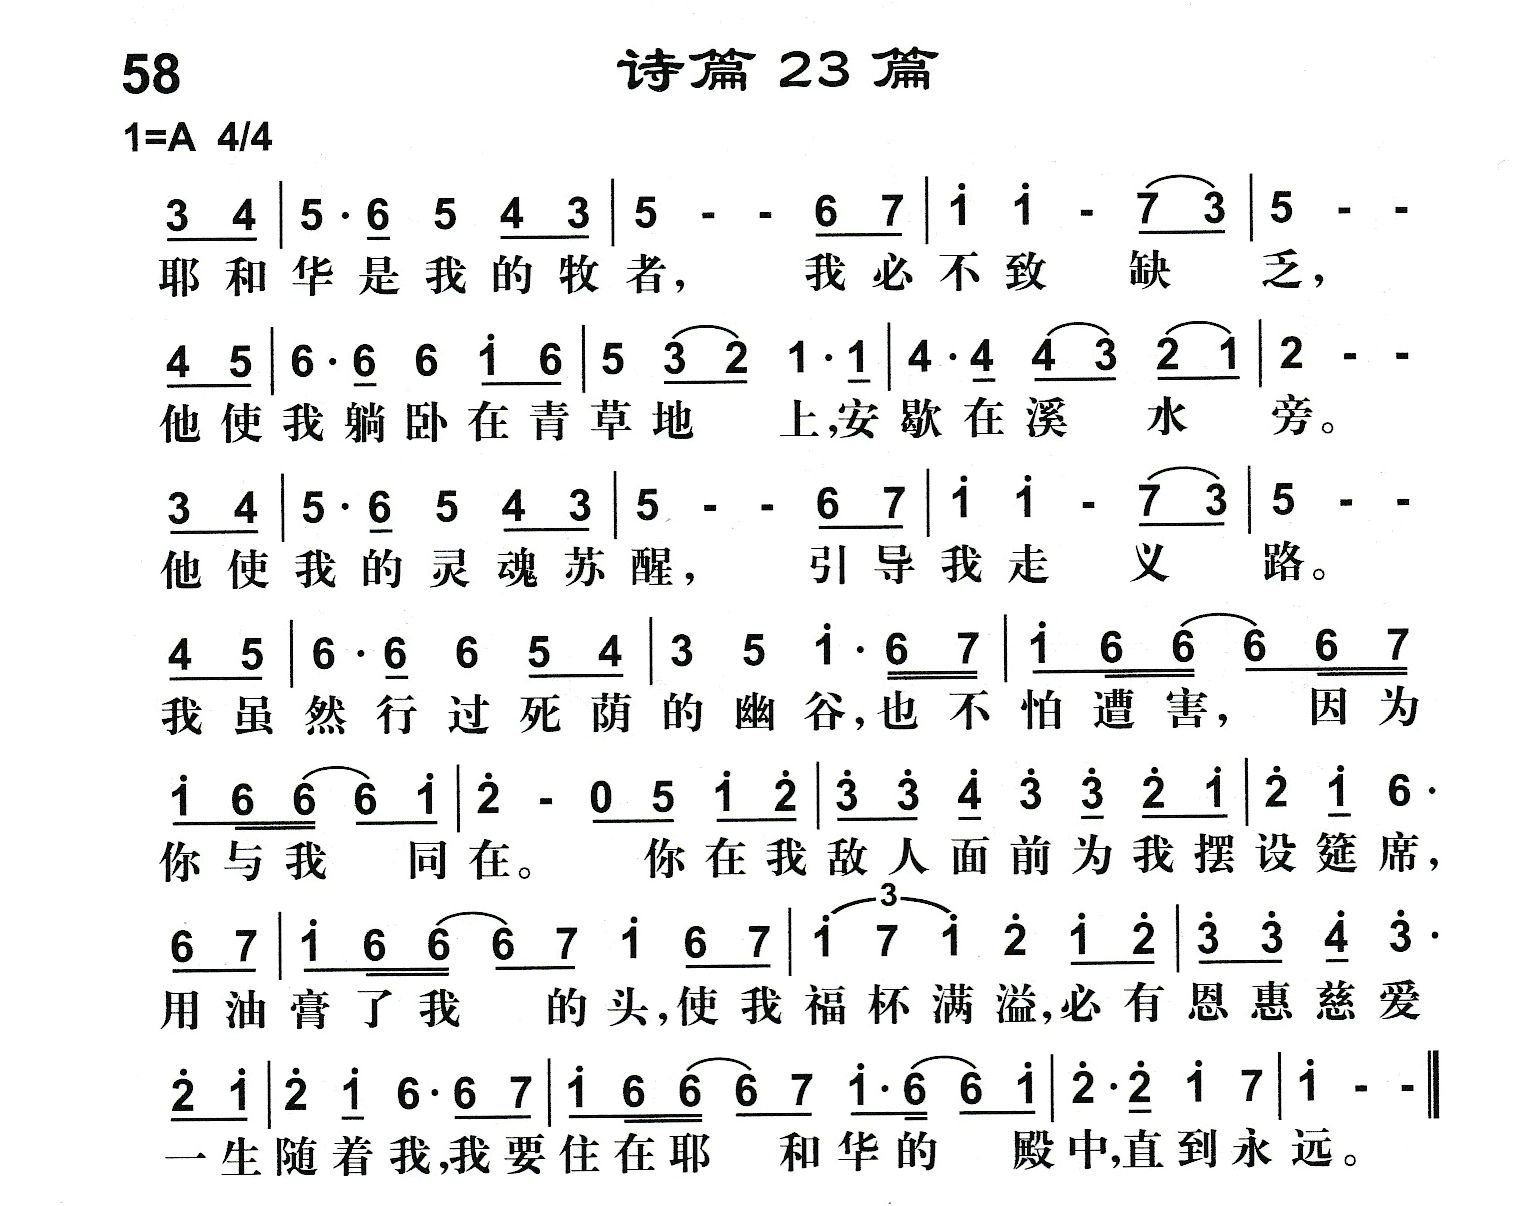 58 诗篇 23 篇
1=A 4/4
3 4 | 5 · 6 5 4 3 | 5 - - 6 7 | 1̇ 1̇ - 7 3 | 5 - -
耶和华是我的牧者， 我必不致 缺 乏，
4 5 | 6 · 6 6 1̇ 6 | 5 3 2 1 · 1 | 4 · 4 4 3 2 1 | 2 - -
他使我躺卧在青草地 上，安歇在溪 水 旁。
3 4 | 5 · 6 5 4 3 | 5 - - 6 7 | 1̇ 1̇ - 7 3 | 5 - -
他使我的灵魂苏醒， 引导我走 义 路。
4 5 | 6 · 6 6 5 4 | 3 5 1̇ · 6 7 | 1̇ 6 6 6 6 7
我虽然行过死荫的幽谷，也不怕遭害， 因为
1̇ 6 6 6 1̇ | 2̇ - 0 5 1̇ 2̇ | 3̇ 3̇ 4̇ 3̇ 3̇ 2̇ 1̇ | 2̇ 1̇ 6 ·
你与我 同在。 你在我敌人面前为我摆设筵席，
3
6 7 | 1̇ 6 6 6 7 1̇ 6 7 | 1̇ 7 1̇ 2̇ 1̇ 2̇ | 3̇ 3̇ 4̇ 3̇ ·
用油膏了我 的头，使我福杯满溢，必有恩惠慈爱
2̇ 1̇ | 2̇ 1̇ 6 · 6 7 | 1̇ 6 6 6 7 1̇ · 6 6 1̇ | 2̇ · 2̇ 1̇ 7 | 1̇ - - ‖
一生随着我，我要住在耶 和华的 殿中，直到永远。